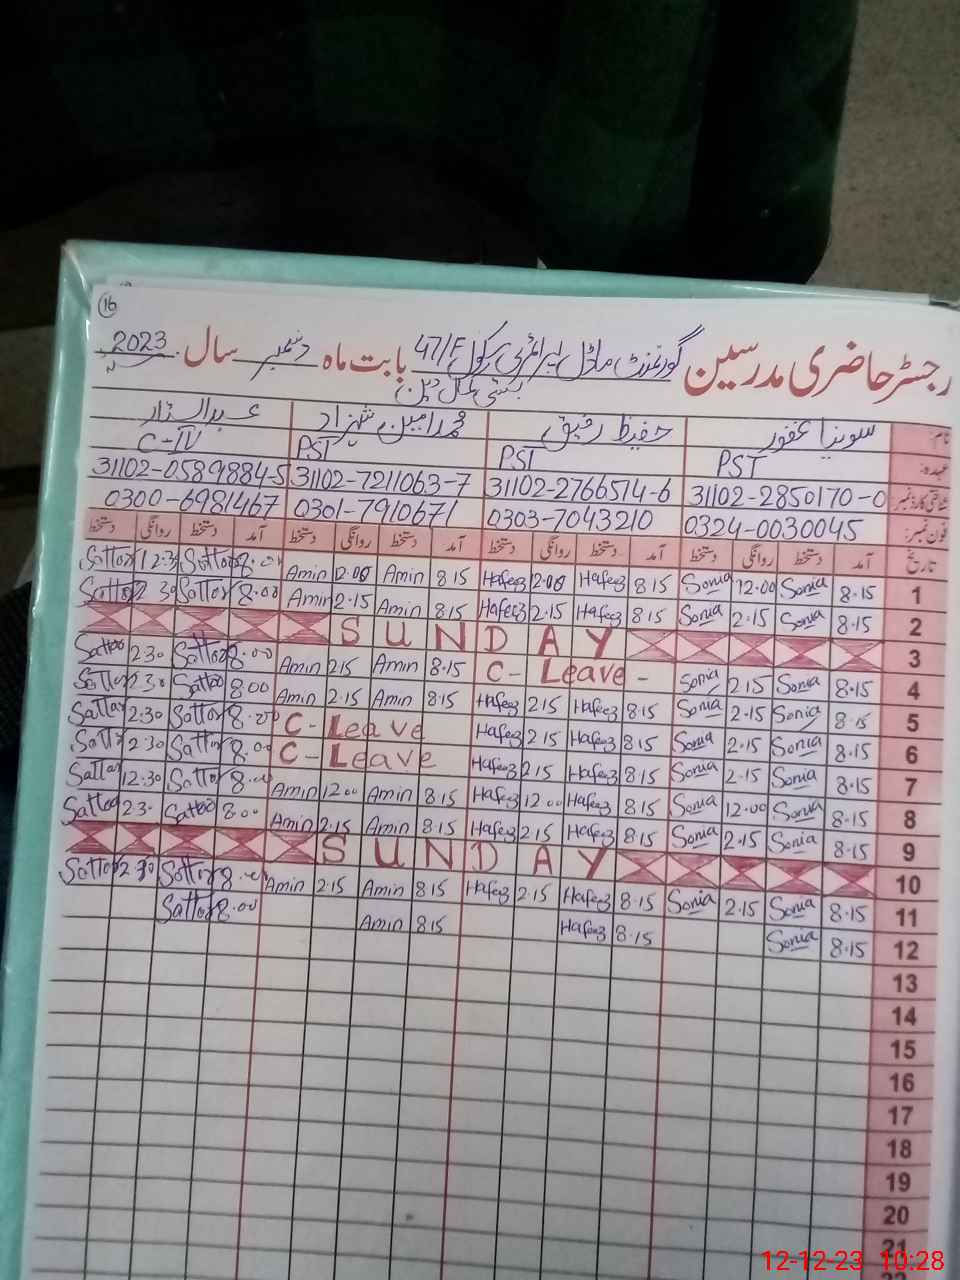 16
رجسٹر حاضری مدرسین گورنمنٹ ماڈل پرائمری سکول 47/F بابت ماہ دسمبر سال 2023
نام: سونیا غفور حفیظ رفیق محمد امین شہزاد عبدالستار
عہدہ: PST PST PST C-IV
شناختی کارڈ نمبر: 31102-2850170-0 31102-2766514-6 31102-7211063-7 31102-0589884-5
فون نمبر: 0324-0030045 0303-7043210 0301-7910671 0300-6981467
تاریخ آمد دستخط روانگی دستخط آمد دستخط روانگی دستخط آمد دستخط روانگی دستخط آمد دستخط روانگی دستخط
1 8.15 Sonia 12.00 Sonia 8.15 Hafeez 12.00 Hafeez 8.15 Amin 12.00 Amin 8.00 Sattar 12.30 Sattar
2 8.15 Sonia 2.15 Sonia 8.15 Hafeez 2.15 Hafeez 8.15 Amin 2.15 Amin 8.00 Sattar 2.30 Sattar
3 SUNDAY
4 8.15 Sonia 2.15 Sonia C- Leave - 8.15 Amin 2.15 Amin 8.00 Sattar 2.30 Sattar
5 8.15 Sonia 2.15 Sonia 8.15 Hafeez 2.15 Hafeez 8.15 Amin 2.15 Amin 8.00 Sattar 2.30 Sattar
6 8.15 Sonia 2.15 Sonia 8.15 Hafeez 2.15 Hafeez C- Leave 8.00 Sattar 2.30 Sattar
7 8.15 Sonia 2.15 Sonia 8.15 Hafeez 2.15 Hafeez C- Leave 8.00 Sattar 2.30 Sattar
8 8.15 Sonia 12.00 Sonia 8.15 Hafeez 12.00 Hafeez 8.15 Amin 12.00 Amin 8.00 Sattar 12.30 Sattar
9 8.15 Sonia 2.15 Sonia 8.15 Hafeez 2.15 Hafeez 8.15 Amin 2.15 Amin 8.00 Sattar 2.30 Sattar
10 SUNDAY
11 8.15 Sonia 2.15 Sonia 8.15 Hafeez 2.15 Hafeez 8.15 Amin 2.15 Amin 8.00 Sattar 2.30 Sattar
12 8.15 Sonia 8.15 Hafeez 8.15 Amin 8.00 Sattar
13
14
15
16
17
18
19
20
21
12-12-23 10:28